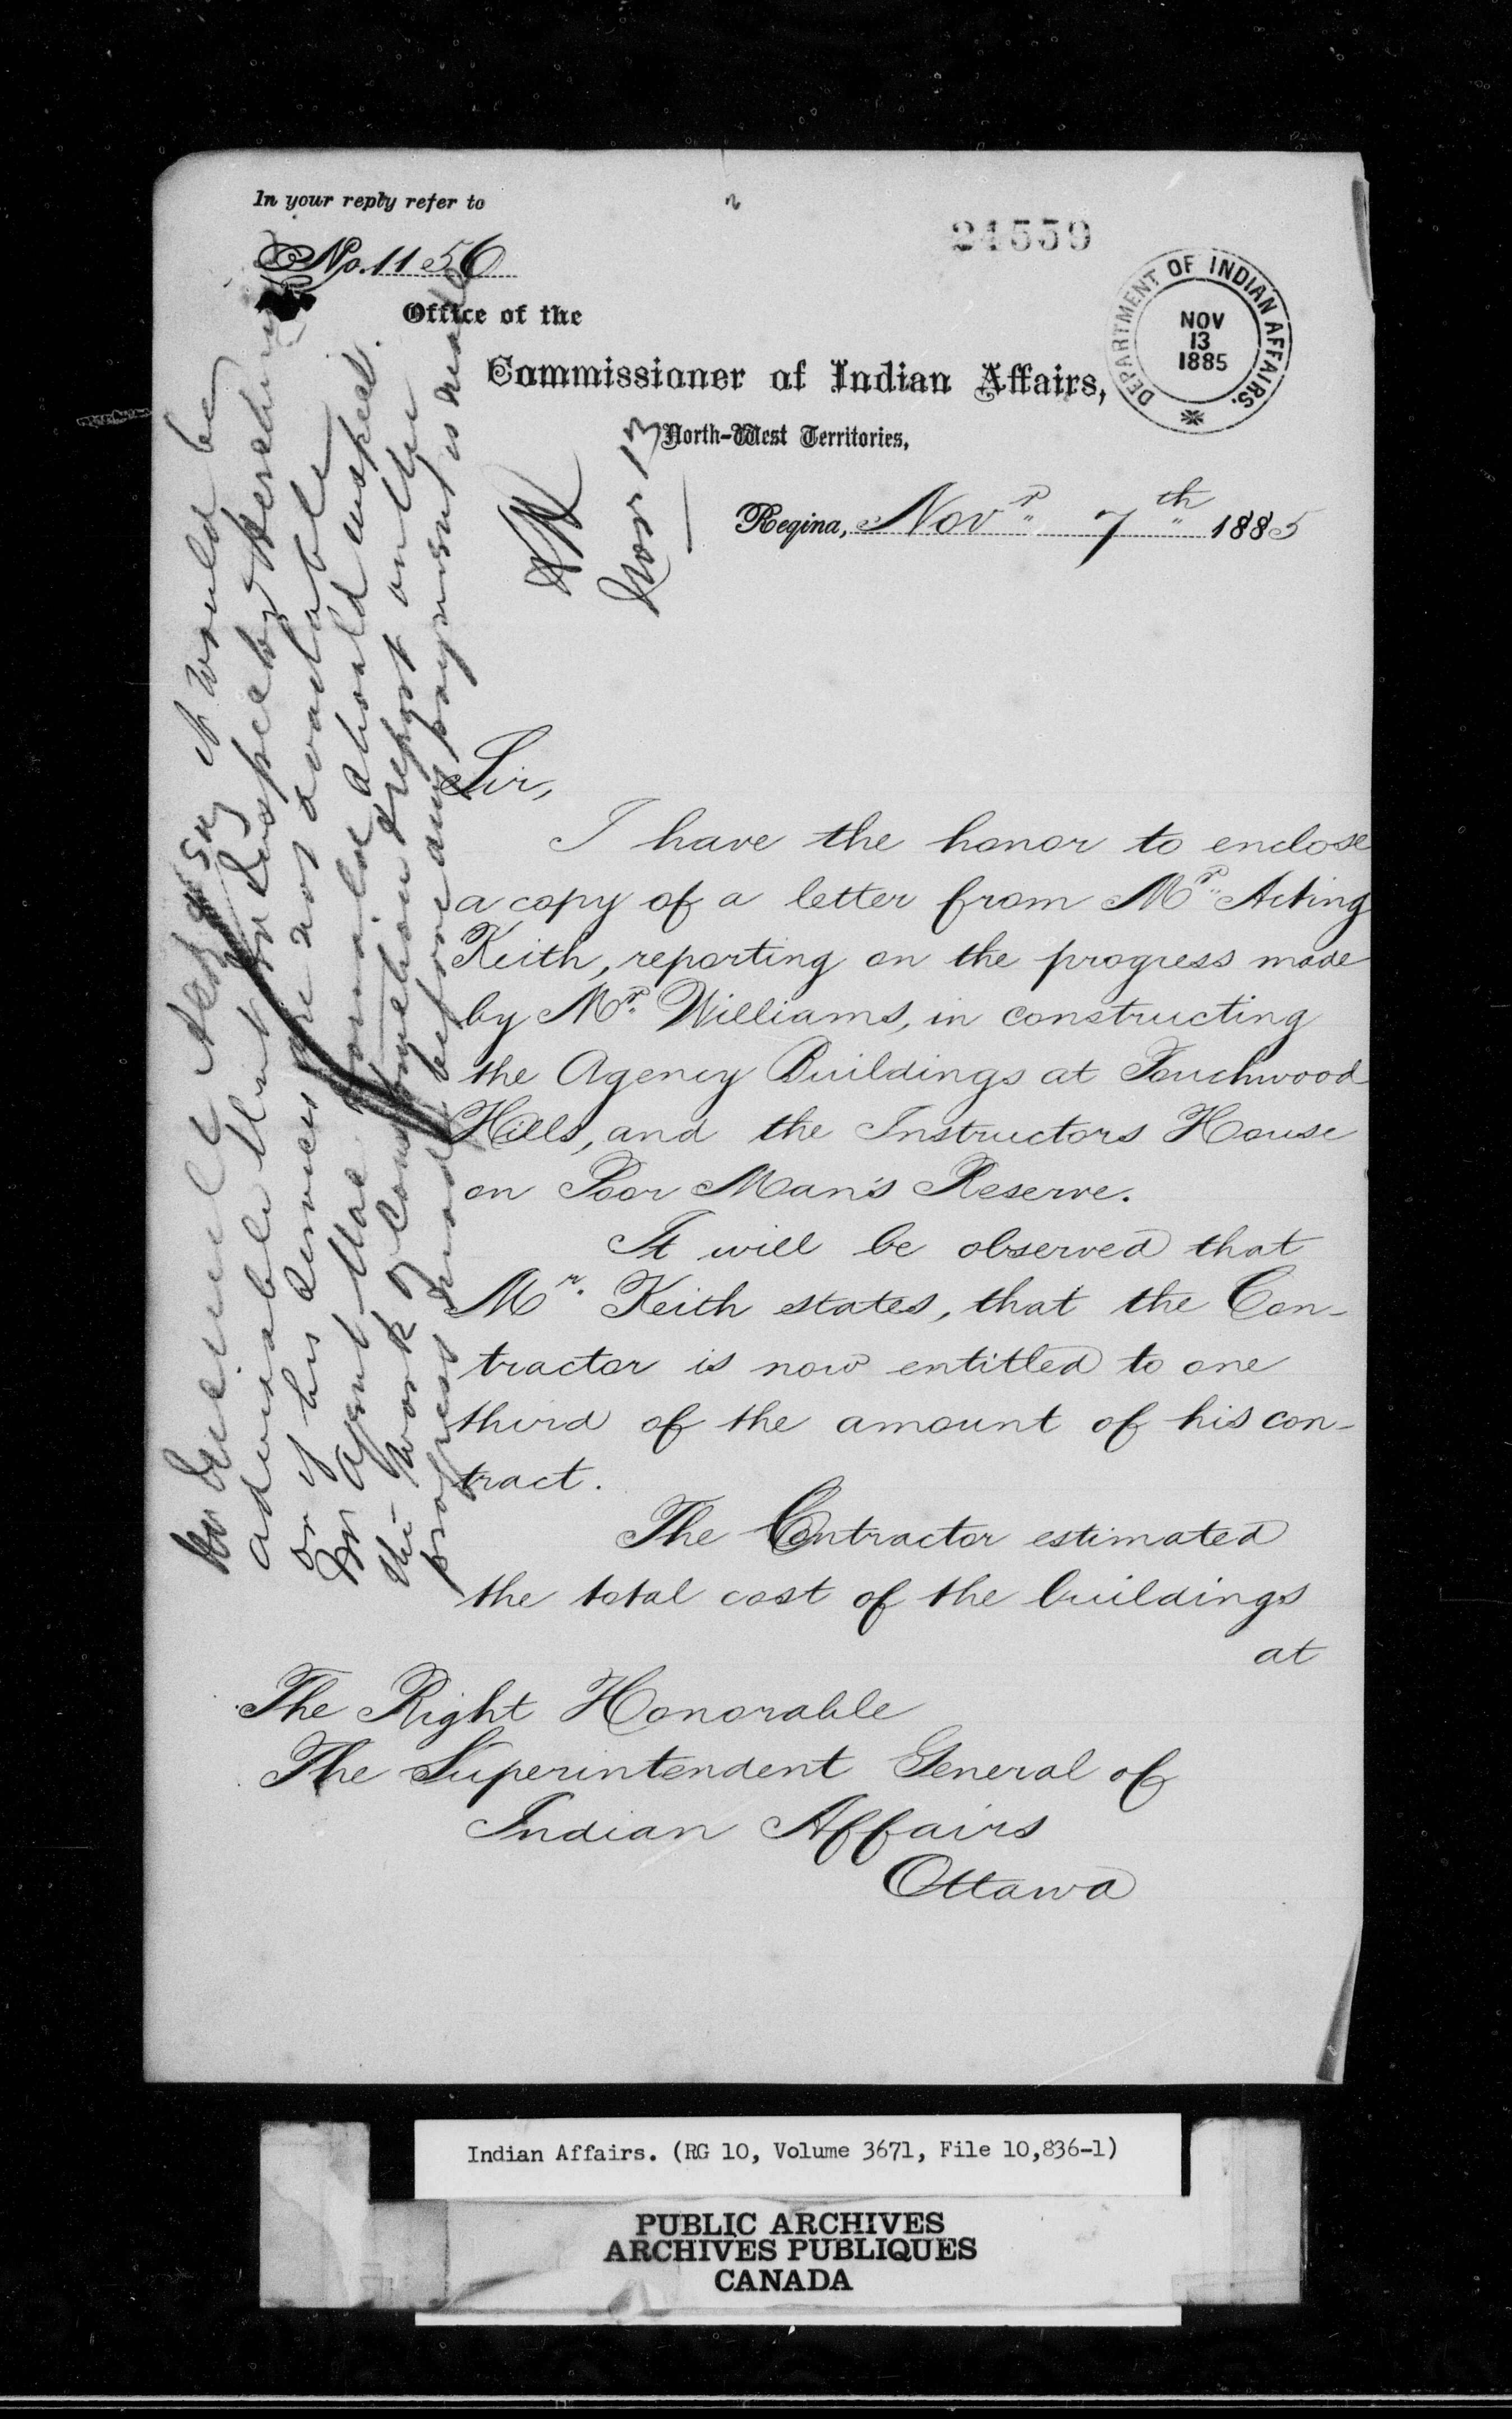 In your reply refer to
No. 1156
24559
Office of the
Commissioner of Indian Affairs,
North-West Territories,
DEPARTMENT OF INDIAN AFFAIRS.
NOV
13
1885
Regina, Novr 7th 1885
Sir,
I have the honor to enclose
a copy of a letter from Mr Acting
Keith, reporting on the progress made
by Mr. Williams, in constructing
the Agency Buildings at Touchwood
Hills, and the Instructors House
on Poor Man's Reserve.
It will be observed that
Mr. Keith states, that the Con-
tractor is now entitled to one
third of the amount of his con-
tract.
The Contractor estimated
the total cost of the buildings
at
The Right Honorable
The Superintendent General of
Indian Affairs
Ottawa
it would be
advisable that Inspector
or if his services are not available
Mr Agent should inspect
the work of construction & report on the
progress made before any payment is made
Nov 13
Indian Affairs. (RG 10, Volume 3671, File 10,836-1)
PUBLIC ARCHIVES
ARCHIVES PUBLIQUES
CANADA